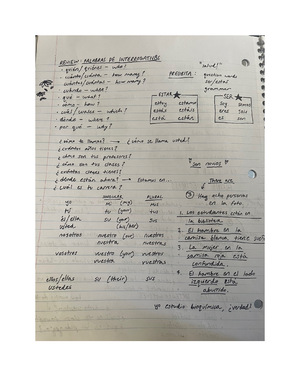 REVIEW: PALABRAS DE INTERROGATIVAS
- quién/quiénes - who?
- cuánto/cuánta - how many?
- cuántos/cuántas - how many?
- cuándo - when?
- qué - what?
- cómo - how?
- cuál/cuáles - which?
- dónde - where?
- por qué - why?
"salud!"
PRUEBITA: question words
ser/estar
grammar
ESTAR
estoy estamos
estás estáis
está están
SER
soy somos
eres sois
es son
¿cómo te llamas? → ¿cómo se llama usted?
¿cuántos años tienes?
¿cómo son tus profesores?
¿cómo son tus clases?
¿cuántas clases tienes?
¿dónde están ahora? → Estamos en
¿cuál es tu carrera?
SINGULAR PLURAL
yo mi (my) mis
tú tu (your) tus
él/ella su (your) sus
usted (his/her)
nosotros nuestro (our) nuestros
nuestra nuestras
vosotros vuestro (your) vuestros
vuestra vuestras
ellos/ellas su (their) sus
ustedes
"son novios"
There are
Hay ocho personas
en la foto
1. Los estudiantes están en
la biblioteca
2. El hombre en la
camisa blanca tiene
3. La mujer en la
camisa roja está
confundida
4. El hombre en el lado
izquierdo está
aburrido.
yo estudio bioquímica, ¿verdad?